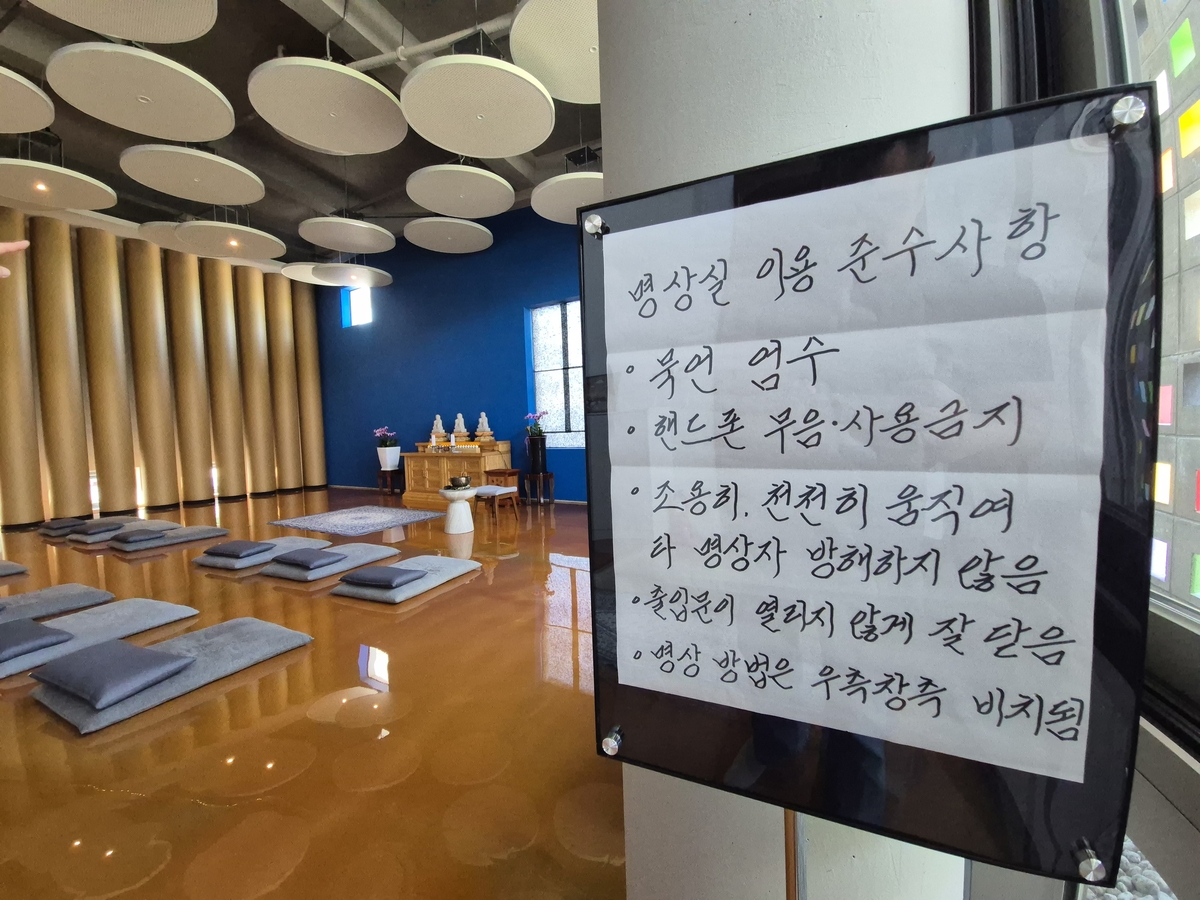 명상실 이용 준수사항
• 묵언 엄수
• 핸드폰 무음·사용금지
• 조용히, 천천히 움직여
타 명상자 방해하지 않음
• 출입문이 열리지 않게 잘 닫음
• 명상 방법은 우측창측 비치됨